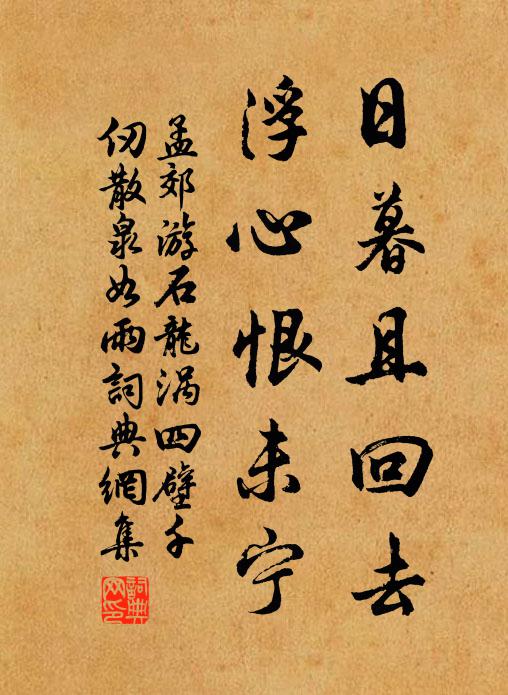 日暮且回去
浮心恨未宁
孟郊游石龍涡四壁千
仞散泉如雨詞典網集
詞典網印